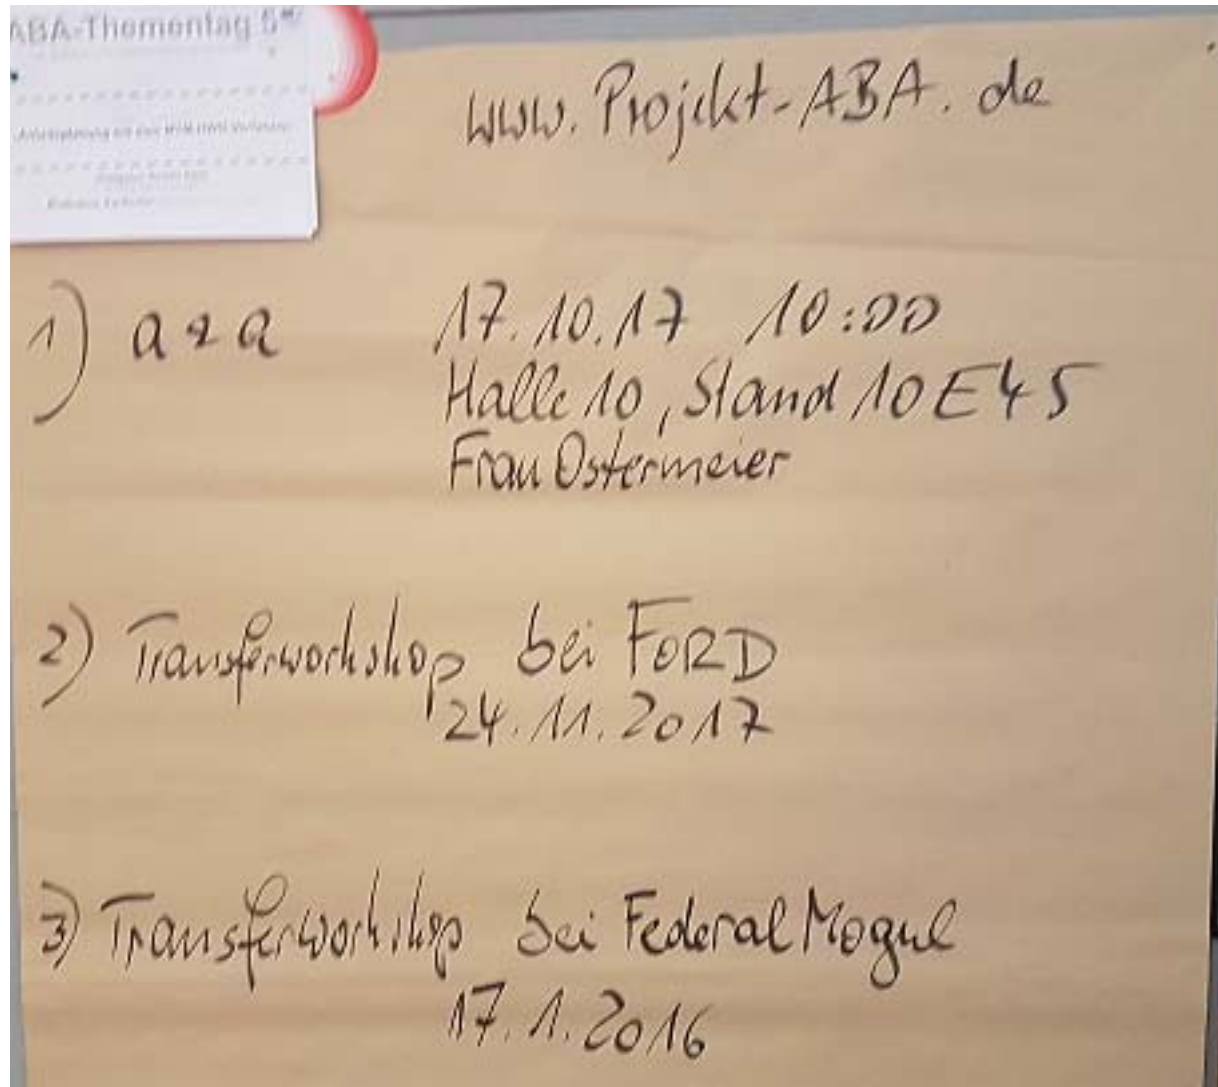 ABA-Thementag 5
www.Projekt-ABA.de
1) a+a 17.10.17 10:00
Halle 10, Stand 10E45
Frau Ostermeier
2) Transferworkshop bei FORD
24.11.2017
3) Transferworkshop bei Federal Mogul
17.1.2016